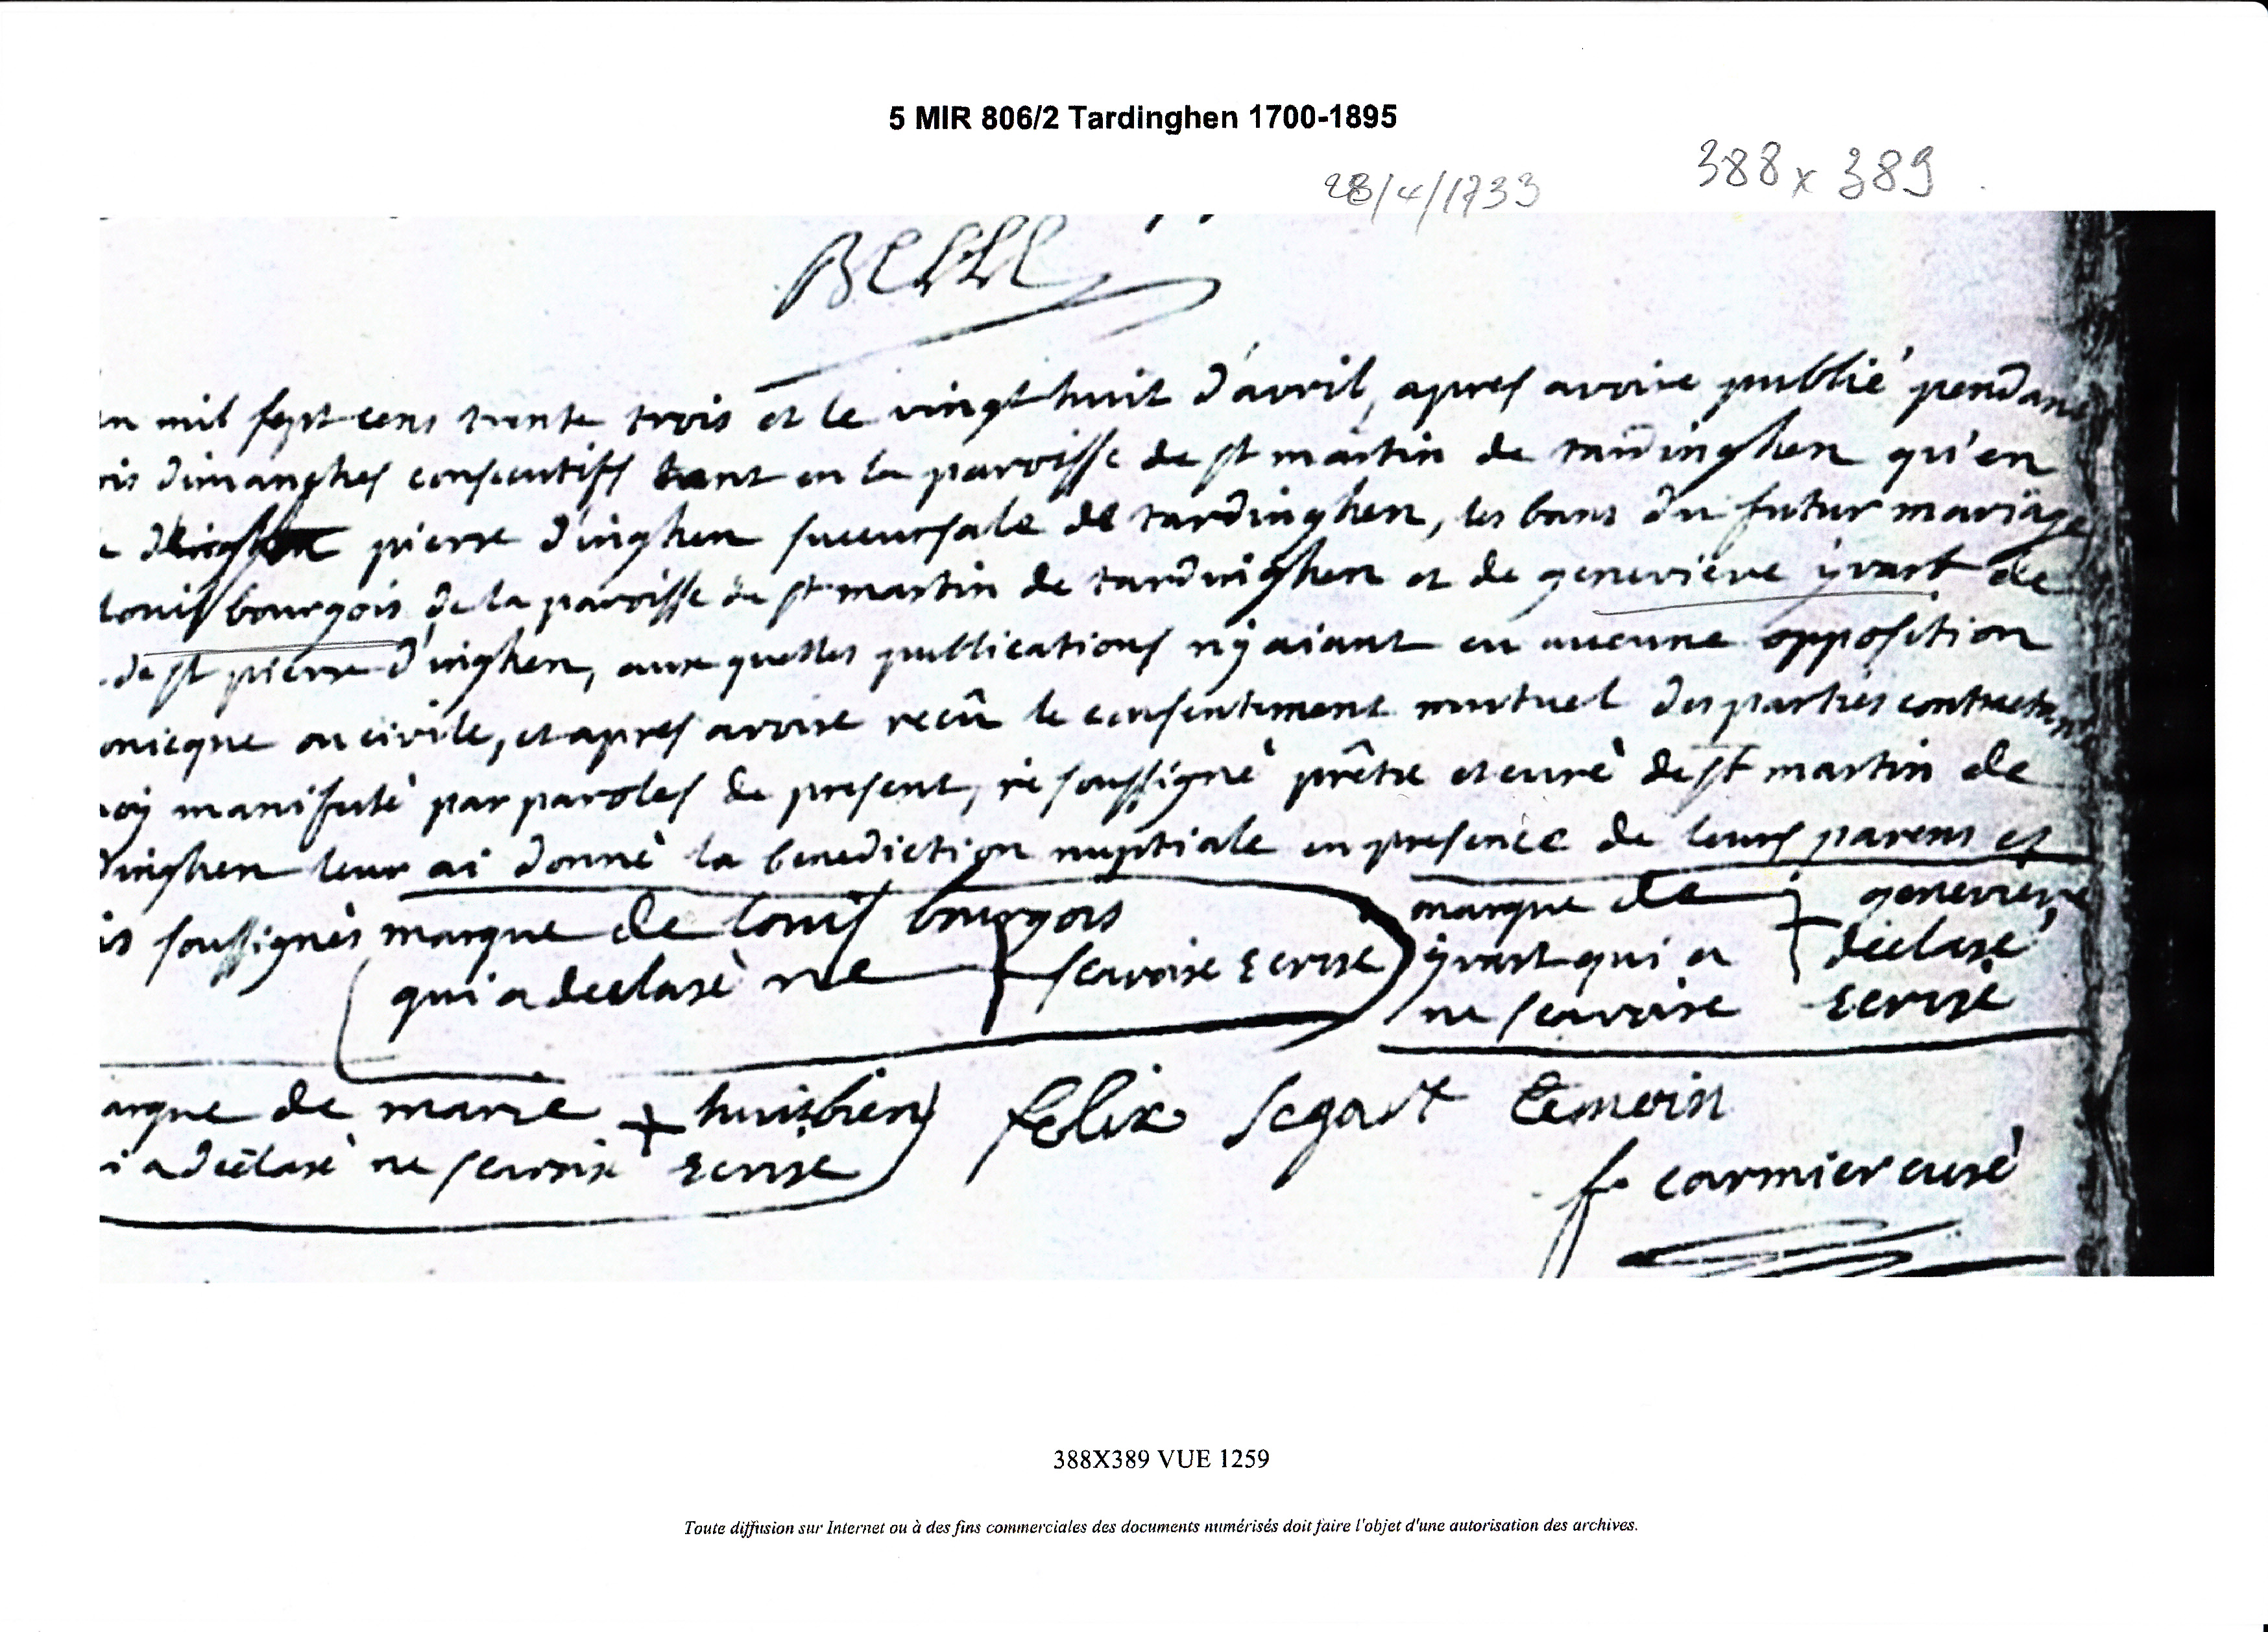 5 MIR 806/2 Tardinghen 1700-1895
28/4/1733
388 x 389
BELLE
n mil sept cens trente trois et le vingt huit d'avril, apres avoire publié pendant
ois dimanches consecutifs tant en la paroisse de st martin de tardinghen qu'en
pierre d'inghen succursale de tardinghen, les bans du futur mariage
louis bourgois de la paroisse de st martin de tardinghen et de genevieve yvart de
de st pierre d'inghen, aux quelles publications ny aiant eu aucune opposition
onicque ou civile, et apres avoire recû le consentement mutuel des parties contractants
oy manifesté par paroles de present, je soussigné prêtre et curé de st martin de
dinghen leur ai donné la benediction nuptiale en presence de leurs parens et
is soussignés marque de louis bourgois
qui a declaré ne scavoire ecrire
marque de genevieve
yvart qui a declaré
ne scavoire ecrire
arque de marie + huisbien
i a declaré ne scavoir ecrire
felix segart temoin
f. carmier curé
388X389 VUE 1259
Toute diffusion sur Internet ou à des fins commerciales des documents numérisés doit faire l'objet d'une autorisation des archives.